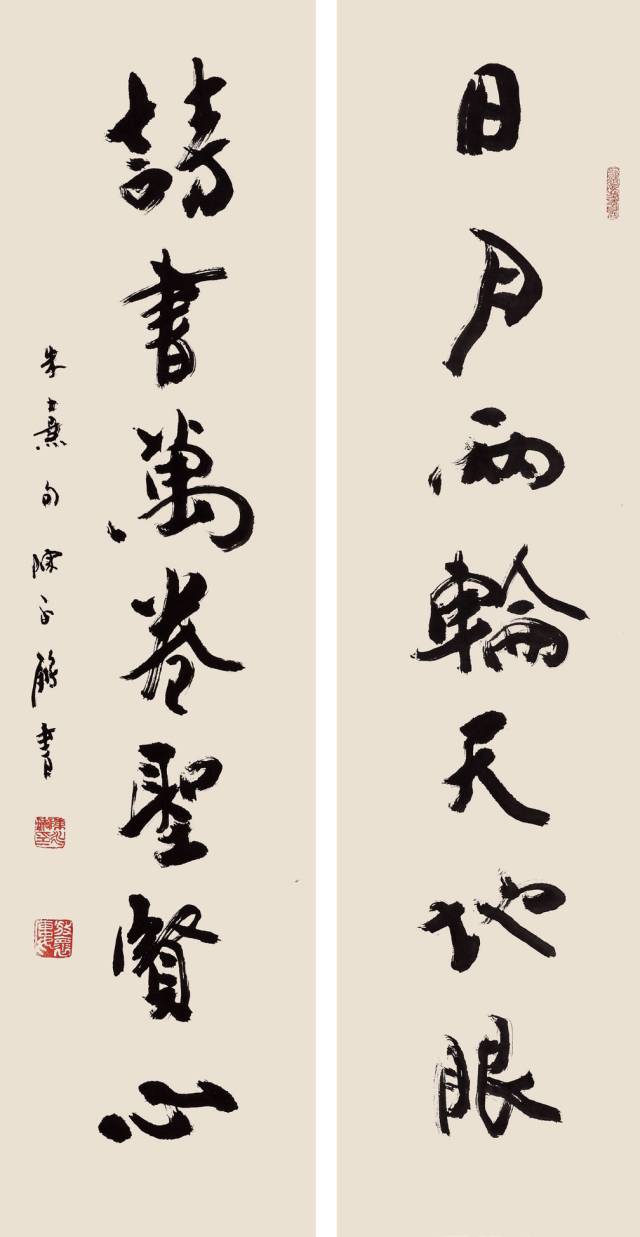 日月兩輪天地眼
詩書萬卷聖賢心
朱熹句 陳永鏘書